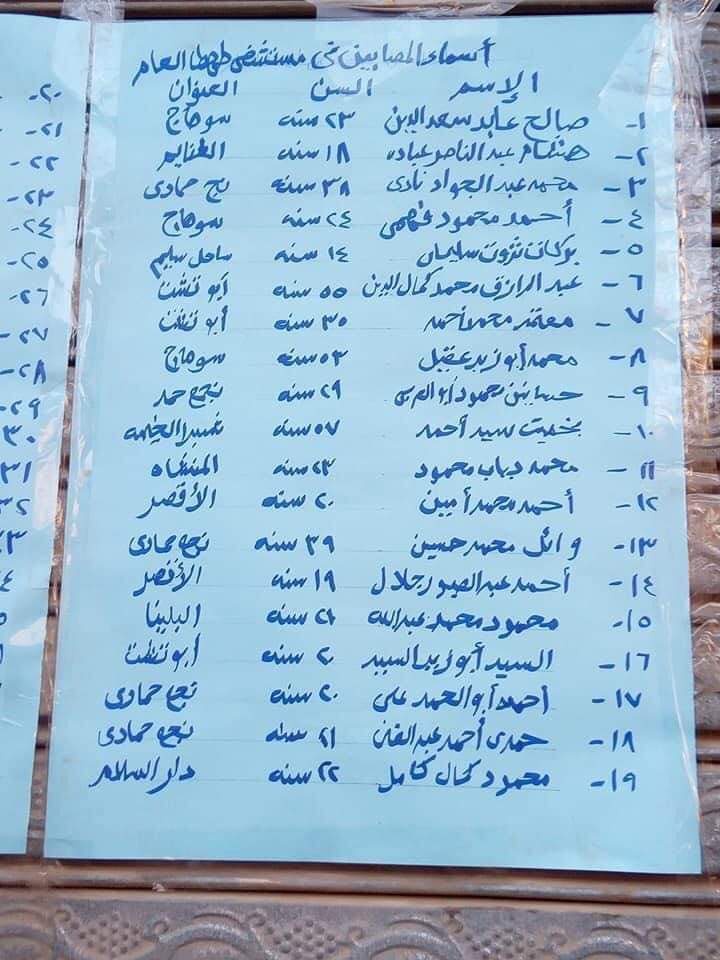 أسماء المصابين فى مستشفى طهطا العام
الإسم السن العنوان
١- صالح عابد سعد الدين ٢٣ سنه سوهاج
٢- هشام عبد الناصر عباده ١٨ سنه الغنايم
٣- محمد عبد الجواد نادى ٣٨ سنه نجع حمادى
٤- أحمد محمود فهمى ٢٤ سنه سوهاج
٥- بركات ثروت سليمان ١٤ سنه ساحل سليم
٦- عبد الرازق محمد كمال الدين ٥٥ سنه أبو تشت
٧- معتز محمد أحمد ٣٥ سنه أبو تشت
٨- محمد أبو زيد عقيل ٥٣ سنه سوهاج
٩- محمود ٢٩ سنه نجع حمد
١٠- بخيت سيد أحمد ٥٧ سنه شبرا الخيمه
١١- محمد دياب محمود ٢٣ سنه المنشاه
١٢- أحمد محمد أمين ٢٠ سنه الأقصر
١٣- وائل محمد حسين ٣٩ سنه نجع حمادى
١٤- أحمد عبد الصبور جلال ١٩ سنه الأقصر
١٥- محمود محمد عبدالله ٢١ سنه البلينا
١٦- السيد أبو زيد السيد ٢٠ سنه أبو تشت
١٧- أحمد أبو الحمد على ٢٠ سنه نجع حمادى
١٨- حمدى أحمد عبد الغنى ٢١ سنه نجع حمادى
١٩- محمود كمال كامل ٢٢ سنه دار السلام
٢٠-
٢١-
٢٢-
٢٣-
٢٤-
٢٥-
٢٦-
٢٧-
٢٨-
٢٩-
٣٠
٣١